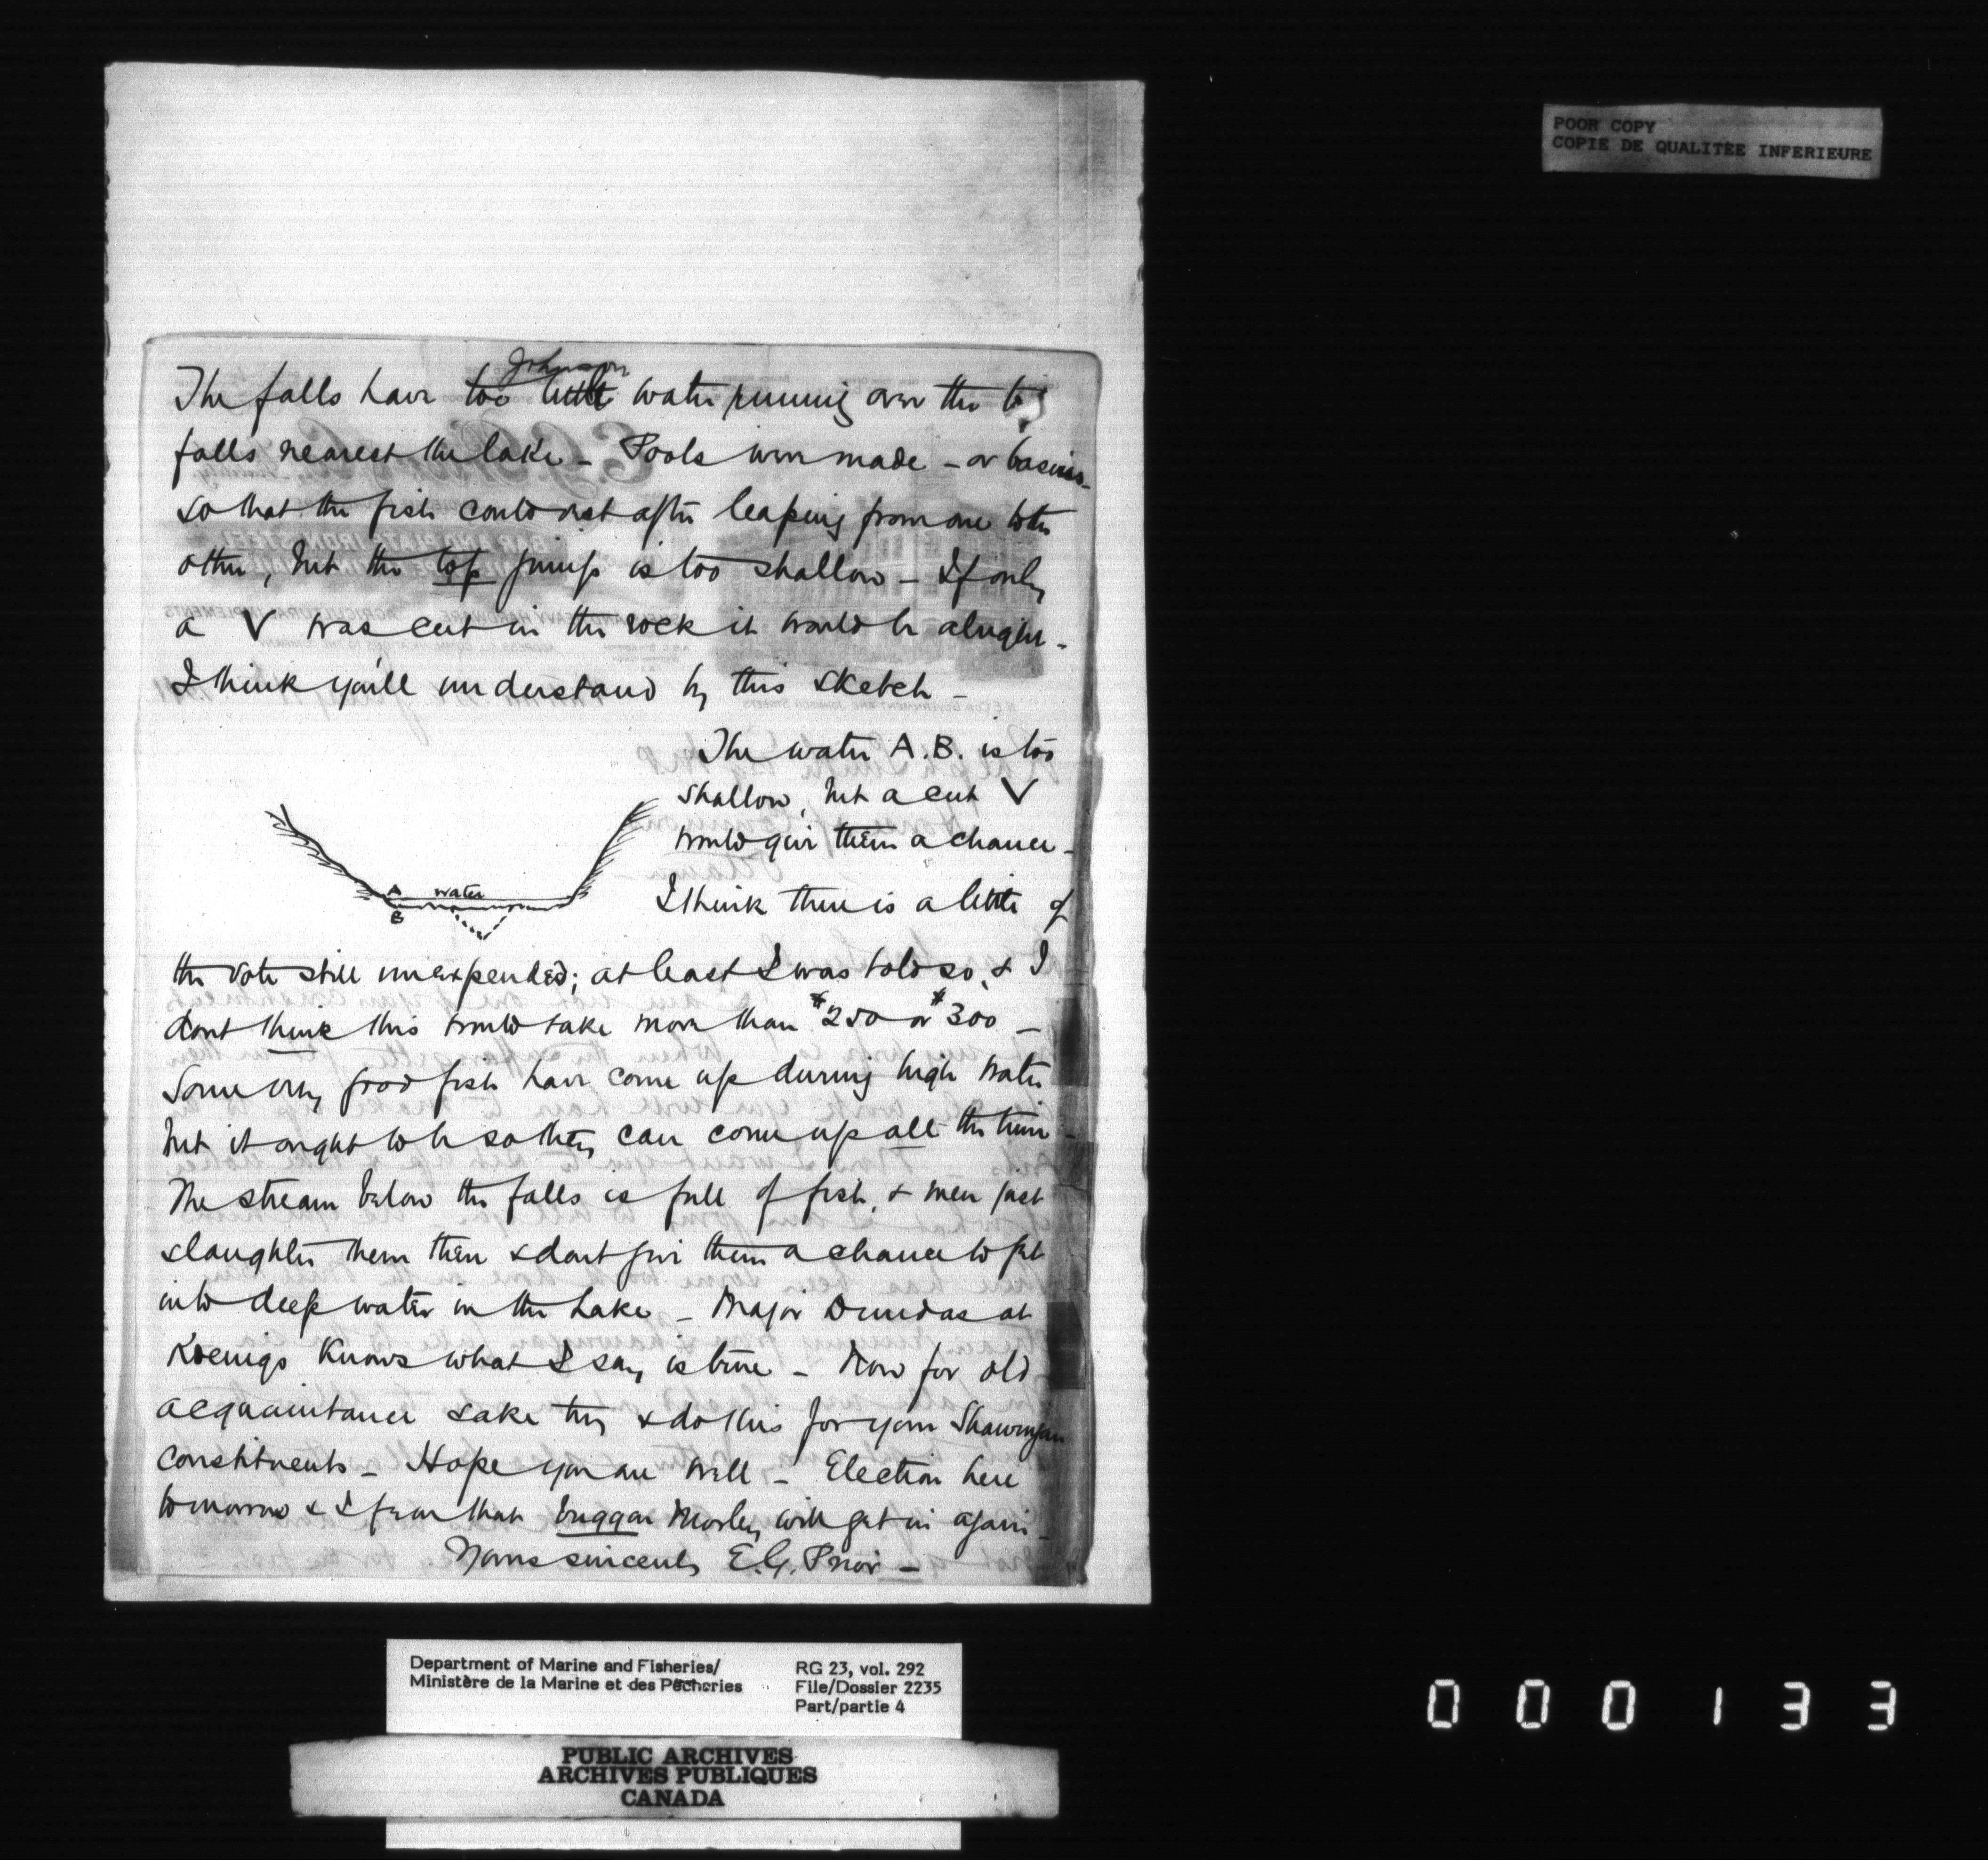 POOR COPY
COPIE DE QUALITÉE INFERIEURE
Johnson
The falls have too little water running over the top
falls nearest the lake - Pools were made - or basins -
so that the fish could rest after leaping from one to the
other, but the top jump is too shallow - If only
a V was cut in the rock it would be alright -
I think you'll understand by this sketch -
The water A.B. is too
shallow, but a cut V
would give them a chance -
A water
B
I think there is a little of
the vote still unexpended; at least I was told so, & I
dont think this would take more than $250 or $300 -
Some very good fish have come up during high water
but it ought to be so they can come up all the time -
The stream below the falls is full of fish, & men just
slaughter them there & dont give them a chance to get
into deep water in the Lake - Major Dundas at
Koenigs Knows what I say is true - Now for old
acquaintance sake try & do this for your Shawnigan
constituents - Hope you are well - Election here
tomorrow & I fear that buggar Morley will get in again -
Yours sincerely E.G. Prior -
Department of Marine and Fisheries/
Ministère de la Marine et des Pêcheries
RG 23, vol. 292
File/Dossier 2235
Part/partie 4
PUBLIC ARCHIVES
ARCHIVES PUBLIQUES
CANADA
000133